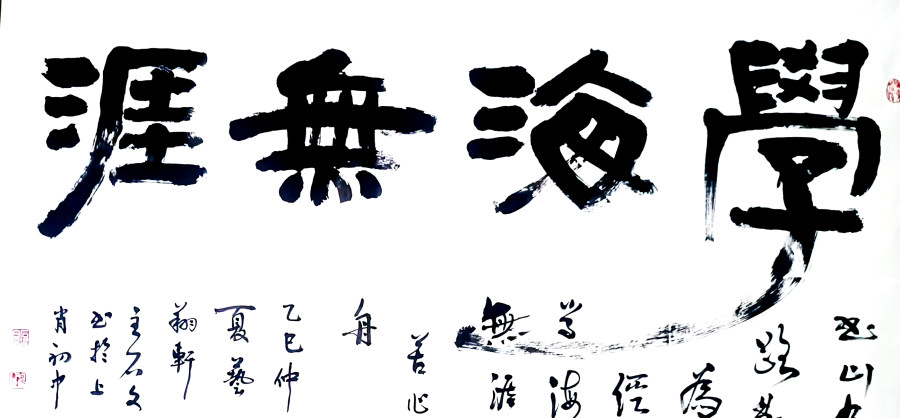 學海無涯
书山有
路勤
為
径
学海
無涯
苦作
舟
乙巳仲
夏藝
翔軒
主石文
书於上
肖初中